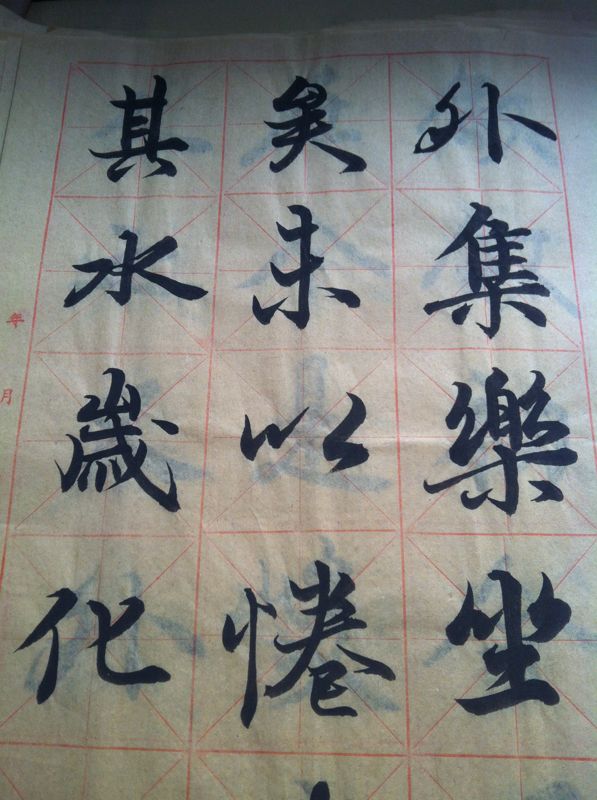 外集樂坐
矣未以惓
其水歲化
年月